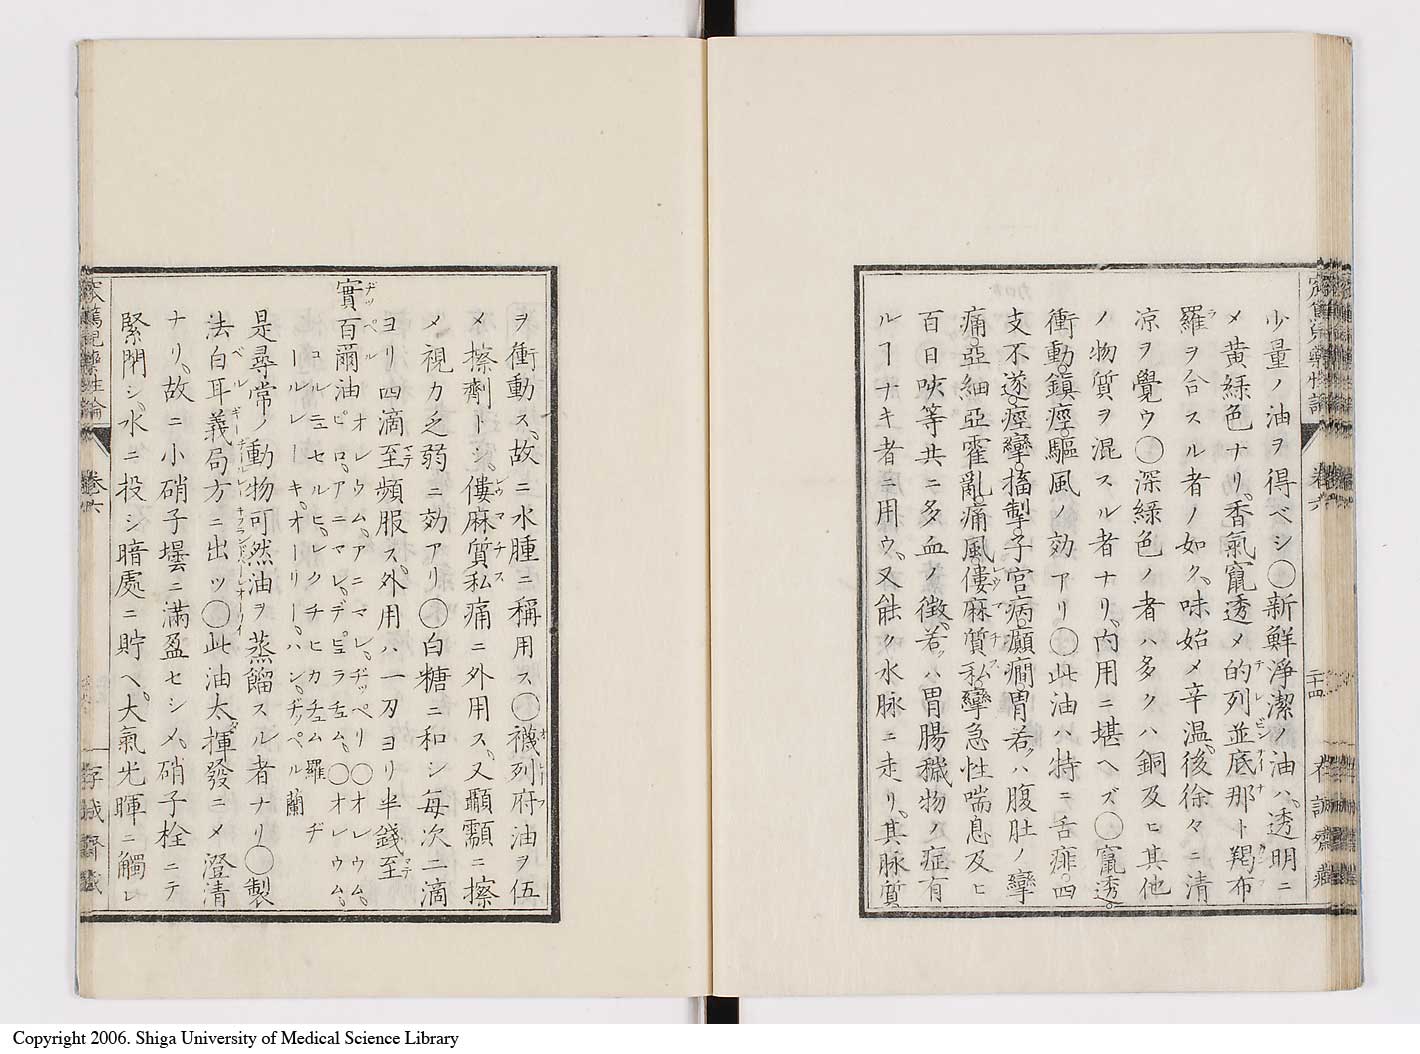 少量ノ油ヲ得ベシ◯新鮮淨潔ノ油ハ、透明ニ
メ黄緑色ナリ、香氣竄透メ的列並底那ト羯布
羅ヲ合スル者ノ如ク、味始メ辛温、後徐々ニ清
凉ヲ覺ウ◯深緑色ノ者ハ多クハ銅及ヒ其他
ノ物質ヲ混スル者ナリ、内用ニ堪ヘズ◯竄透。
衝動。鎮痙。驅風ノ効アリ◯此油ハ特ニ舌痱。四
支不遂。痙攣。搐掣。子宮病。癲癇。胃若クハ腹肚ノ攣
痛。亞細亞霍亂。痛風。僂麻質私。攣急性喘息及ヒ
百日咳等共ニ多血ノ徴、若クハ胃腸穢物ノ症有
ルヿナキ者ニ用ウ、又能ク水脉ニ走リ、其脉質
卷六
二十四
ヲ衝動ス、故ニ水腫ニ稱用ス◯襪列府油ヲ伍
メ擦劑トシ、僂麻質私痛ニ外用ス、又顳顬ニ擦
メ視力乏弱ニ効アリ◯白糖ニ和シ每次二滴
ヨリ四滴至頻服ス、外用ハ一刃ヨリ半錢至
實百爾油 オレウム、アニマレ、ヂッペリ◯オレウム、
ピロ、アニマレ、デピュラチュム、◯オレウム、
コルニュセルヒ、レクチヒカチュム羅ヂ
ールレーキ、オーリー、ハン、ヂッペル蘭
是尋常ノ動物可然油ヲ蒸餾スル者ナリ◯製
法白耳義局方ニ出ツ◯此油太揮發ニメ澄清
ナリ、故ニ小硝子壜ニ滿盈セシメ、硝子栓ニテ
緊閉シ、水ニ投シ暗處ニ貯ヘ、大氣光暉ニ觸レ
卷六
Copyright 2006. Shiga University of Medical Science Library